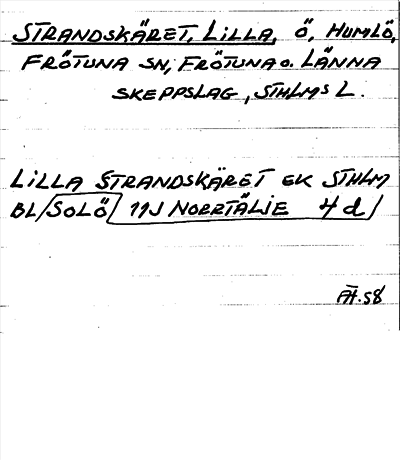 STRANDSKÄRET, LILLA, Ö, HUMLÖ,
FRÖTUNA SN, FRÖTUNA O. LÄNNA
SKEPPSLAG, STHLMS L.
LILLA STRANDSKÄRET EK STHLM
BL/SOLÖ/ 11J NORRTÄLJE 4d/
ÄH.58